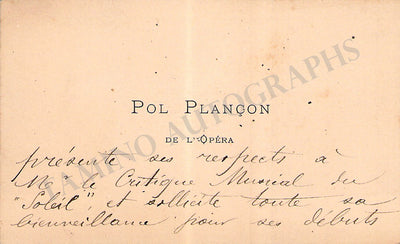 POL PLANÇON
DE L'OPÉRA
présente ses respects à
Mr le Critique Musical du
"Soleil" et sollicite toute sa
bienveillance pour ses débuts
TAMINO AUTOGRAPHS